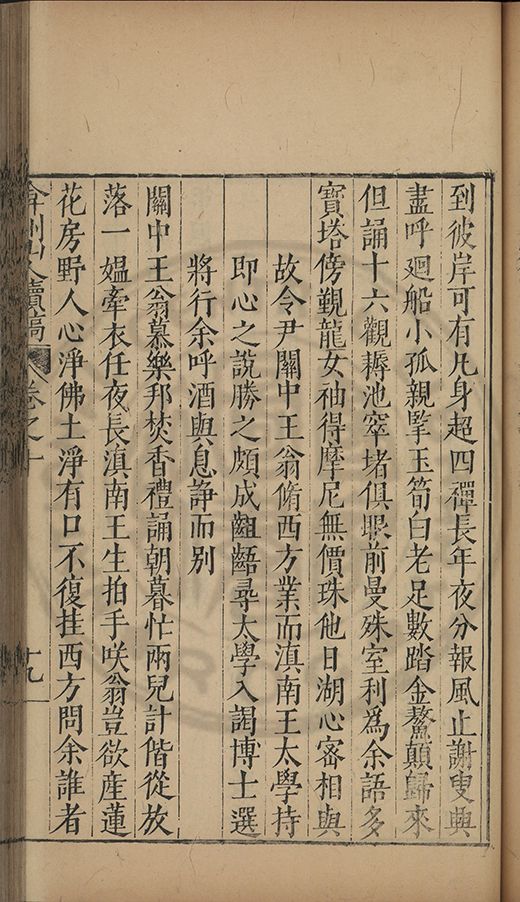 到彼岸可有凡身超四禪長年夜分報風止謝叟興
盡呼廻船小孤親擥玉筍白老足數踏金鰲顛歸來
但誦十六觀耨池窣堵俱眼前曼殊室利為余語多
寶塔傍覲龍女袖得摩尼無價珠他日湖心審相與
故令尹關中王翁脩西方業而滇南王太學持
即心之說勝之頗成齟齬尋太學入謁博士選
將行余呼酒與息諍而別
關中王翁慕樂邦焚香禮誦朝暮忙兩兒計偕從放
落一媼牽衣任夜長滇南王生拍手咲翁豈欲産蓮
花房野人心淨佛土淨有口不復挂西方問余誰者
弇州山人續稿 卷之十 十九